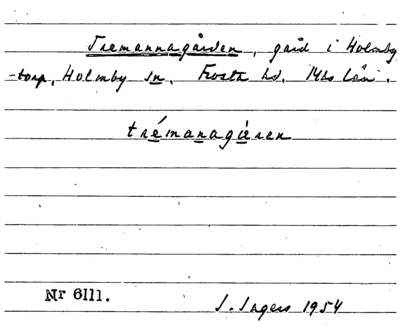 Tremannagården, gård i Holmby
-torp, Holmby sn. Frosta hd. Mhs län.
trémanagå̀ren
Nr 6111.
J. Ingers 1954